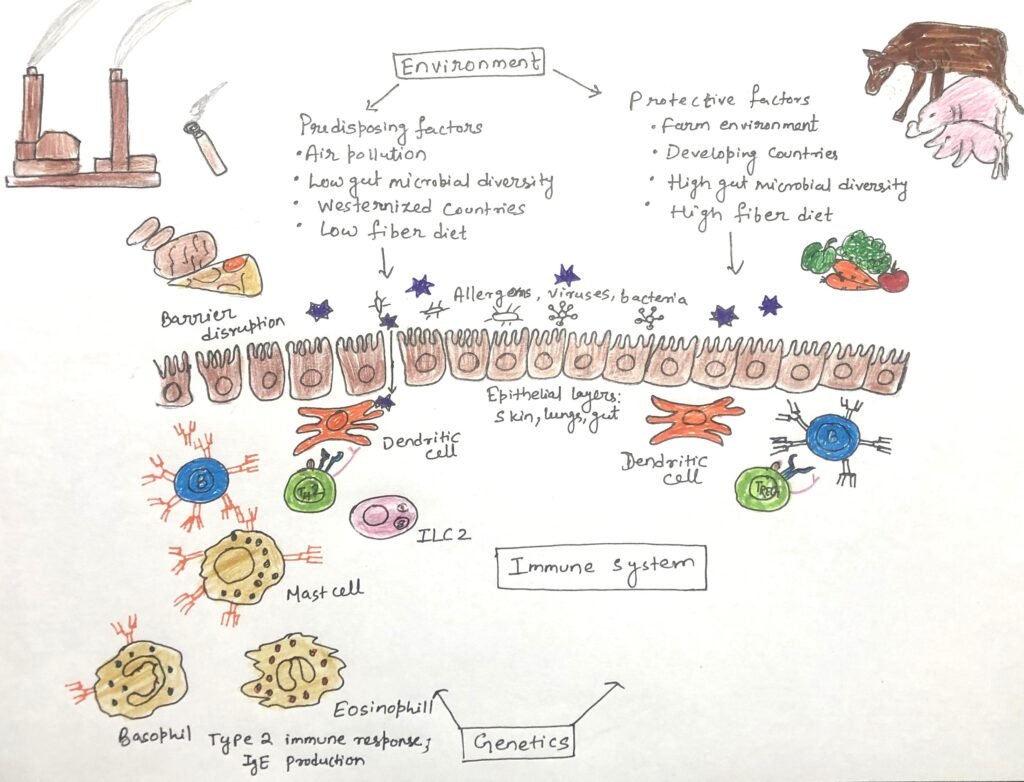 Environment
Predisposing factors
• Air pollution
• Low gut microbial diversity
• Westernized Countries
• Low fiber diet
Protective factors
• Farm environment
• Developing Countries
• High gut microbial diversity
• High fiber diet
Allergens, viruses, bacteria
Barrier
disruption
Epithelial layers:
Skin, lungs, gut
Dendritic
cell
Dendritic
cell
B
B
TH2
TREG
ILC2
Immune system
Mast cell
Eosinophill
Basophil
Type 2 immune response;
IgE production
Genetics